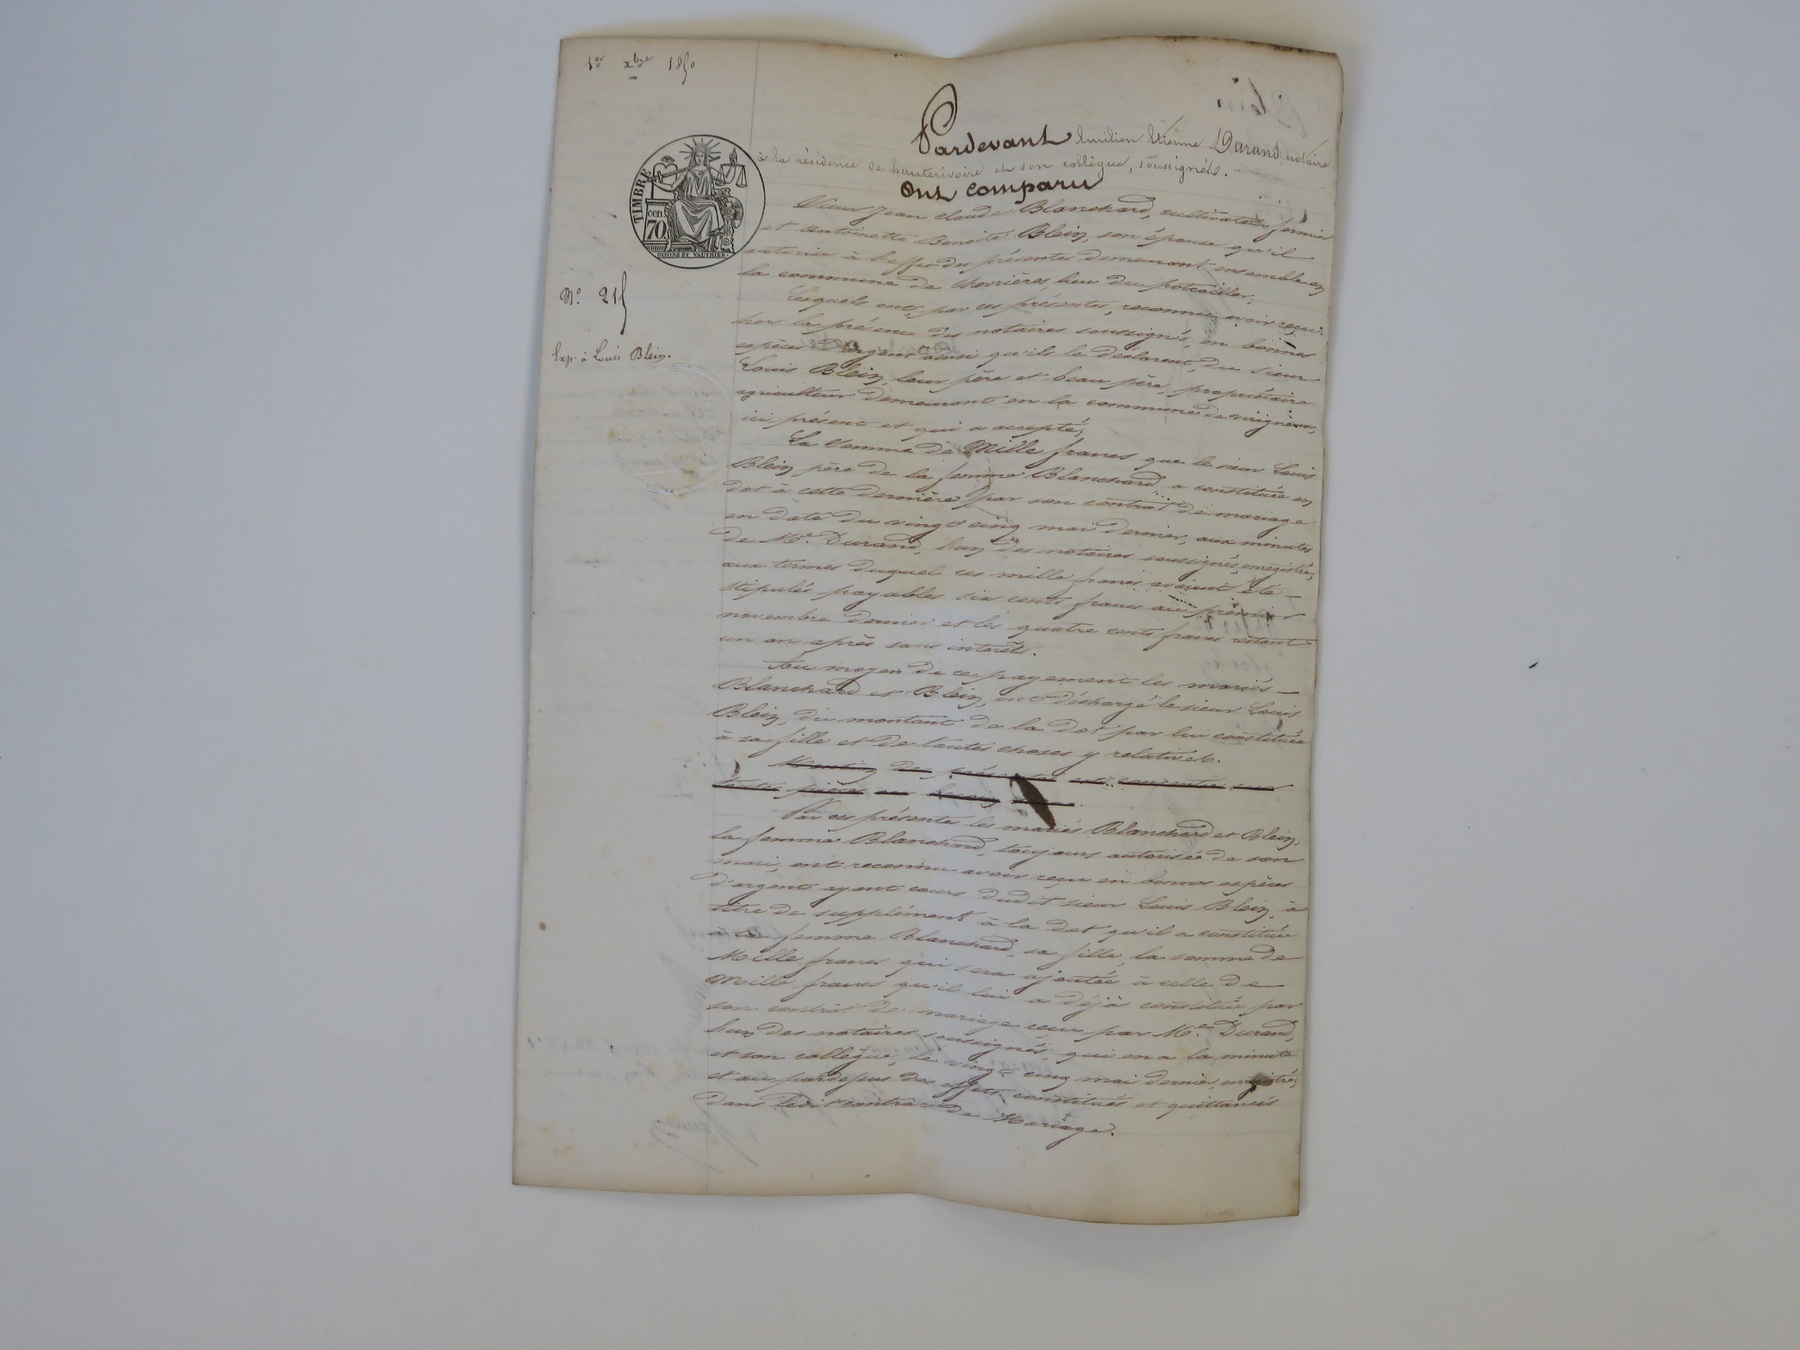 1er xbre 1850
Pardevant Emilien Etienne Durand, notaire
à la résidence de hauterivoire et son collègue, soussignés.
Ont comparu
TIMBRE
cen.
70.
Sieur Jean Claude Blanchard, cultivateur fermier
et Antoinette Benoite Blein, son épouse qu'il
autorise à l'effet des présentes demeurant ensemble en
la commune de Chevrières, lieu du
N° 215
Lesquels ont, par ces présentes, reconnu avoir reçu
hors la présence des notaires soussignés, en bonnes
Exp. à Louis Blein.
espèces d'argent ainsi qu'ils le déclarent, du sieur
Louis Blein, leur père et beau père, propriétaire
agriculteur demeurant en la commune de virigneux,
ici présent et qui a accepté,
La somme de Mille francs que le sieur Louis
Blein, père de la femme Blanchard, a constituée en
dot à cette dernière par son contrat de mariage
en date du vingt cinq mai dernier, aux minutes
de Me. Durand, l'un des notaires soussignés, enregistré,
aux termes duquel ces mille francs avaient été
stipulés payables six cents francs au premier
novembre dernier et les quatre cents francs restant
un an après sans intérêts.
Au moyen de ce payement les mariés
Blanchard et Blein, ont déchargé le sieur Louis
Blein, du montant de la dot par lui constituée
à sa fille et de toutes choses y relatives.
Mention des présentes est consentie sur
toutes pièces au besoin
Par ces présentes les mariés Blanchard et Blein,
la femme Blanchard, toujours autorisée de son
mari, ont reconnu avoir reçu en bonnes espèces
d'argent ayant cours dudit sieur Louis Blein, à
titre de supplément à la dot qu'il a constituée
à la femme Blanchard, sa fille, la somme de
Mille francs qui sera ajoutée à celle de
Mille francs qu'il lui a déjà constituée par
son contrat de mariage reçu par Me. Durand,
l'un des notaires soussignés, qui en a la minute
et son collègue, le vingt cinq mai dernier, enregistré,
et au pardessus des effets constitués et quittancés
dans ledit contrat de Mariage.